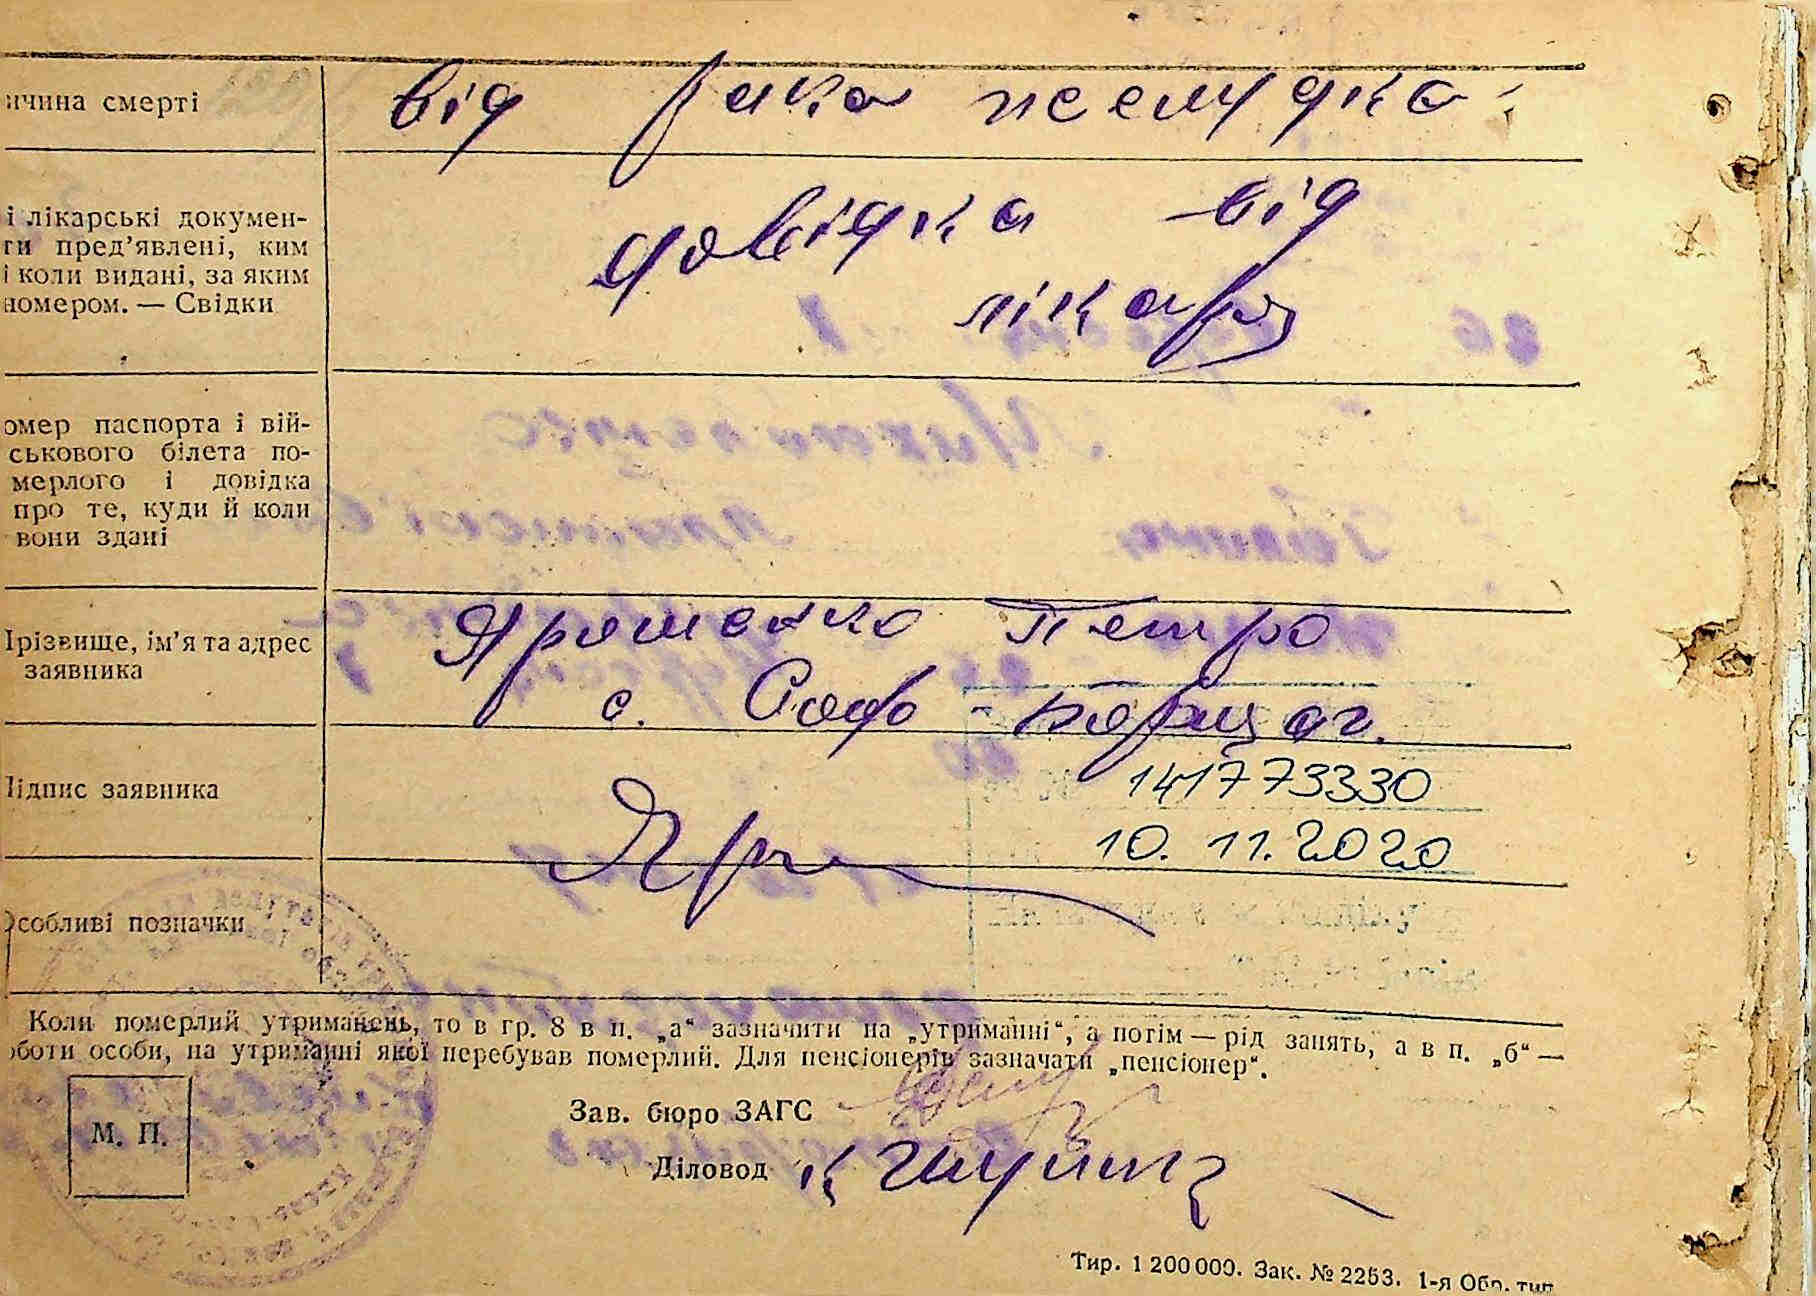 ичина смерті
від рака желудка
і лікарські докумен-
ти пред’явлені, ким
і коли видані, за яким
номером. — Свідки
довідка від
лікаря
омер паспорта і вій-
ськового білета по-
мерлого і довідка
про те, куди й коли
вони здані
Прізвище, ім’я та адрес
заявника
Ярошенко Петро
с. Софо - Борщаг.
Підпис заявника
141773330
10. 11. 2020
Особливі позначки
Коли померлий утриманець, то в гр. 8 в п. „а“ зазначити на „утриманні“, а потім — рід занять, а в п. „б“ —
оботи особи, на утриманні якої перебував померлий. Для пенсіонерів зазначати „пенсіонер“.
М. П.
Зав. бюро ЗАГС
Діловод
Тир. 1 200 000. Зак. № 2253. 1-я Обр. тип